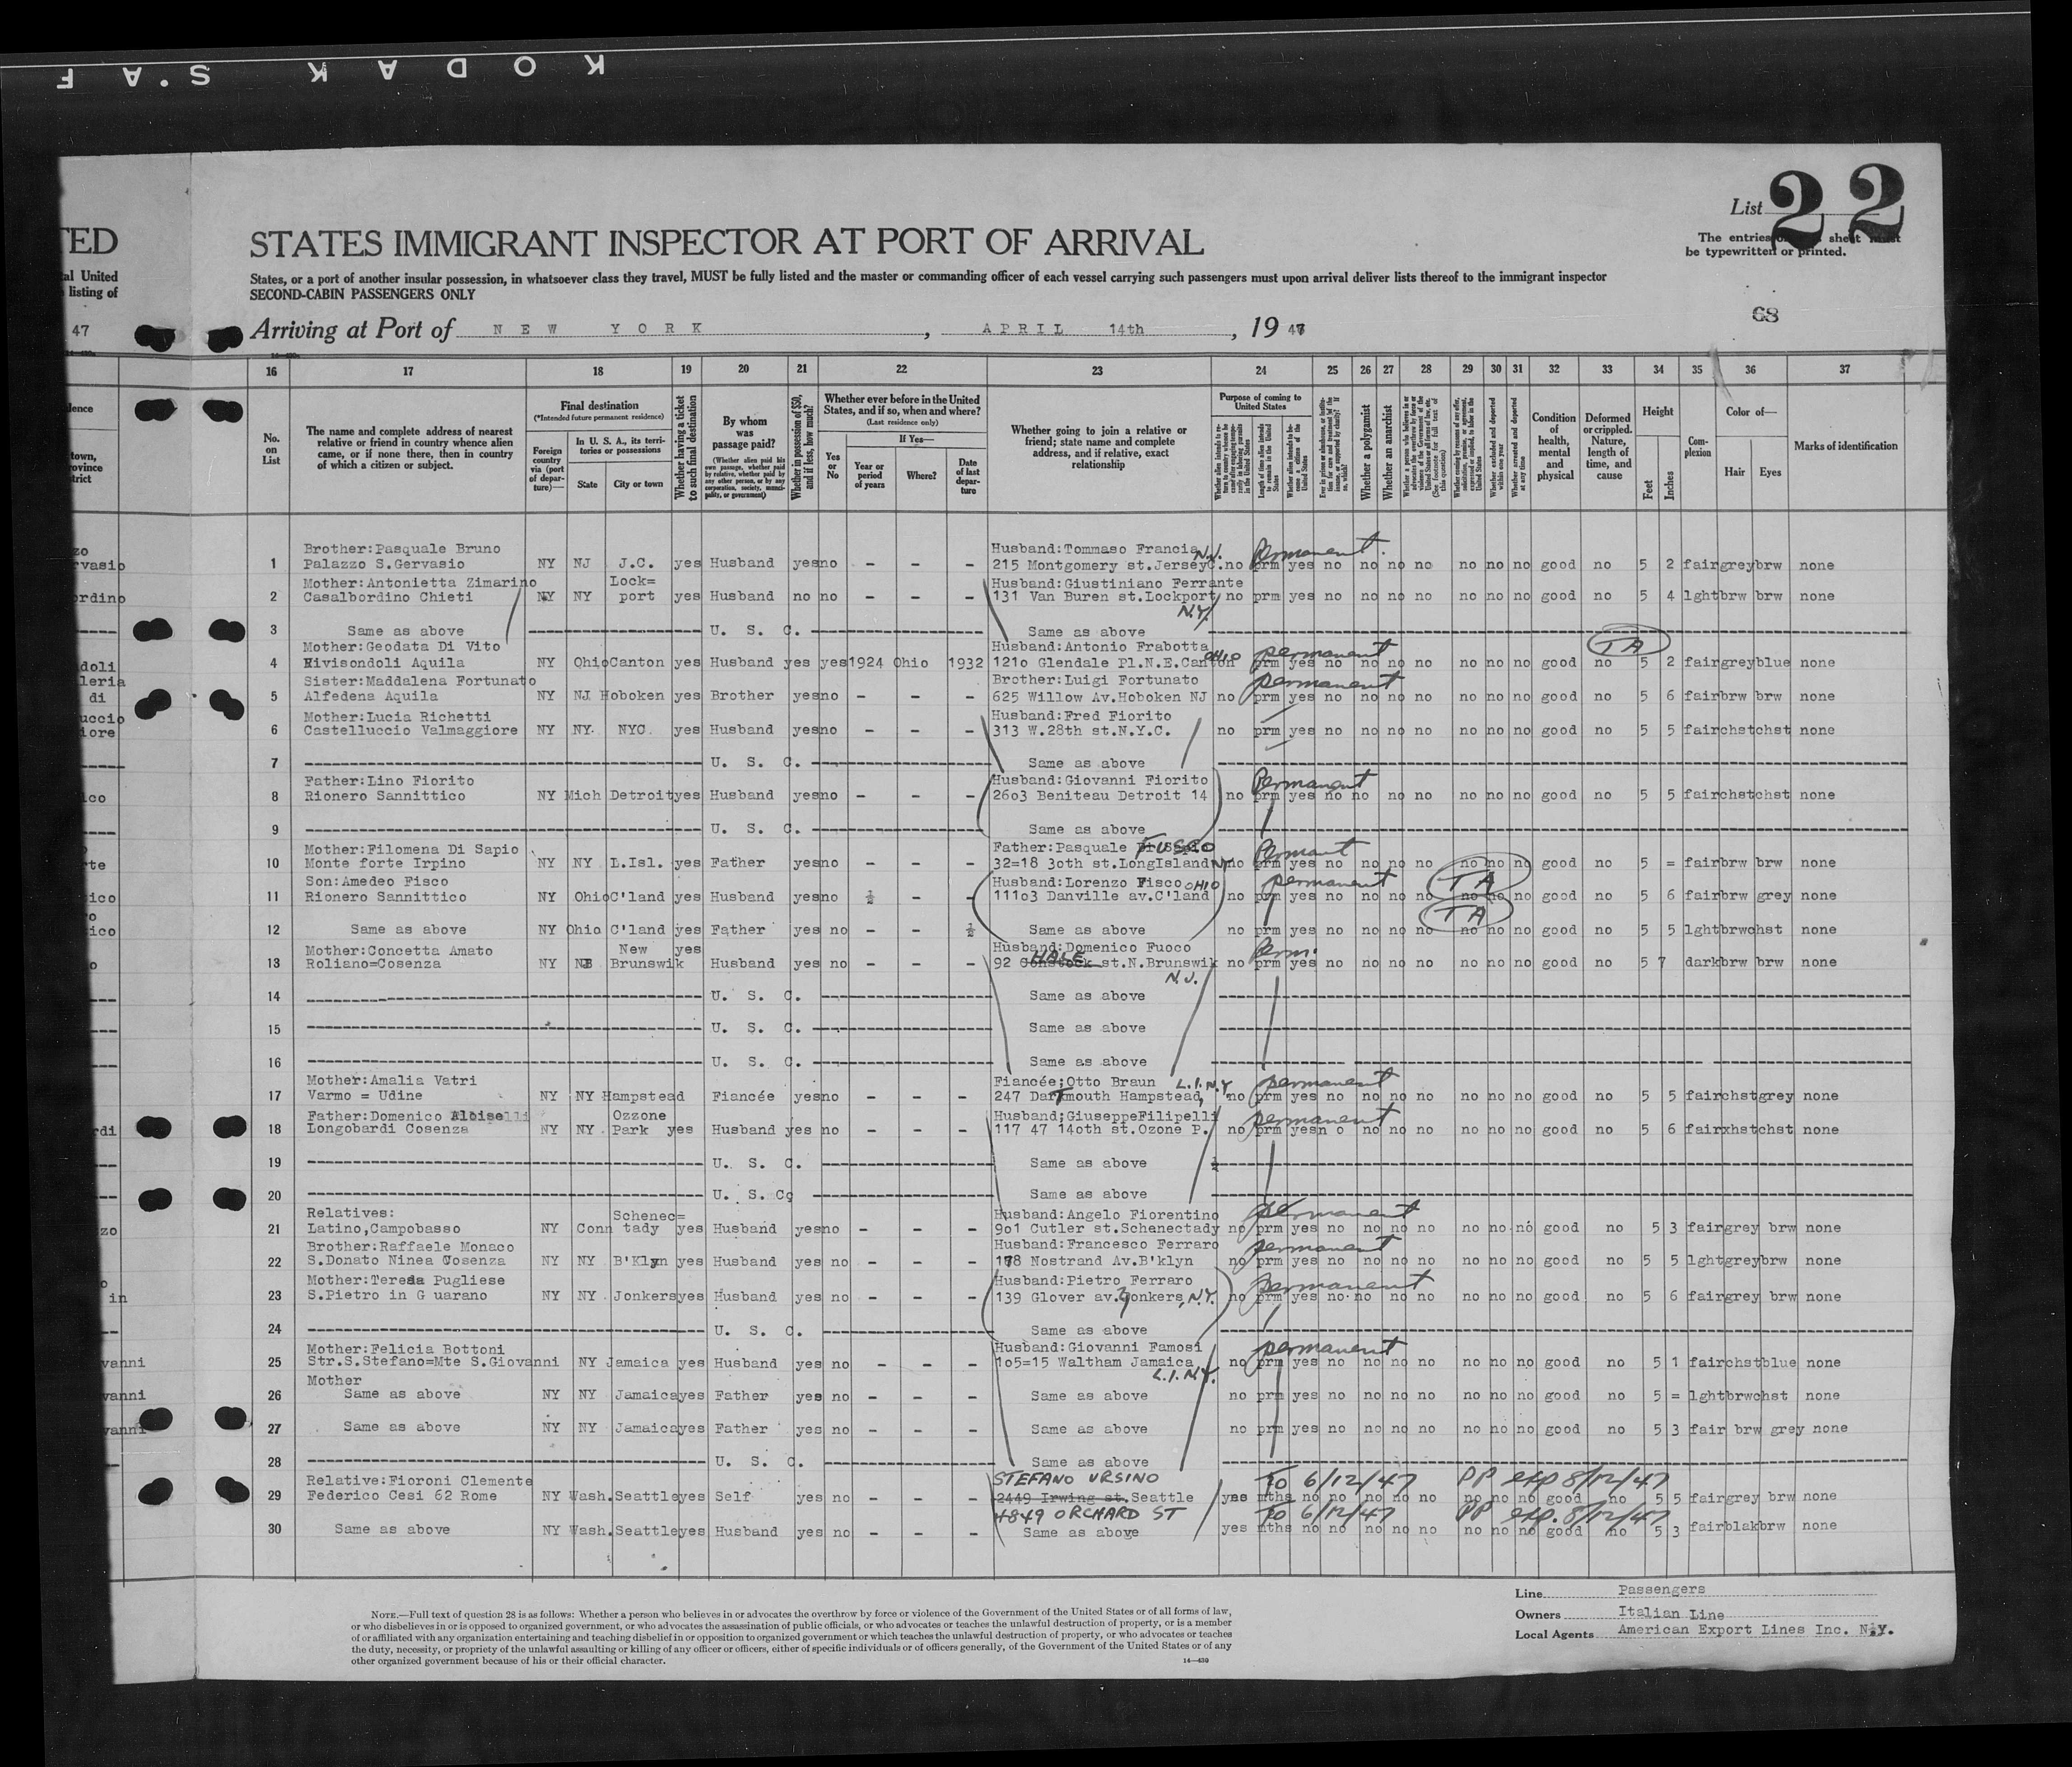 KODAK S.A F
List 22
The entries on this sheet must
be typewritten or printed.
TED
STATES IMMIGRANT INSPECTOR AT PORT OF ARRIVAL
tal United
listing of
States, or a port of another insular possession, in whatsoever class they travel, MUST be fully listed and the master or commanding officer of each vessel carrying such passengers must upon arrival deliver lists thereof to the immigrant inspector
SECOND-CABIN PASSENGERS ONLY
68
47
Arriving at Port of NEW YORK, APRIL 14th, 19 47
16 17 18 19 20 21 22 23 24 25 26 27 28 29 30 31 32 33 34 35 36 37
No. on List
The name and complete address of nearest relative or friend in country whence alien came, or if none there, then in country of which a citizen or subject.
Final destination
(*Intended future permanent residence)
Foreign country via (port of departure)—
In U. S. A., its territories or possessions
State
City or town
Whether having a ticket to such final destination
By whom was passage paid?
(Whether alien paid his own passage, whether paid by relative, whether paid by any other person, or by any corporation, society, municipality, or government)
Whether in possession of $50, and if less, how much?
Whether ever before in the United States, and if so, when and where?
(Last residence only)
Yes or No
If Yes—
Year or period of years
Where?
Date of last departure
Whether going to join a relative or friend; state name and complete address, and if relative, exact relationship
Purpose of coming to United States
Whether a polygamist
Whether an anarchist
Condition of health, mental and physical
Deformed or crippled. Nature, length of time, and cause
Height
Feet
Inches
Complexion
Color of—
Hair
Eyes
Marks of identification
Brother:Pasquale Bruno Husband:Tommaso Francia N.J. Permanent.
1 Palazzo S.Gervasio NY NJ J.C. yes Husband yes no - - - 215 Montgomery st.JerseyC. no prm yes no no no no no no no good no 5 2 fair grey brw none
Mother:Antonietta Zimarino Lock= Husband:Giustiniano Ferrante
2 Casalbordino Chieti NY NY port yes Husband no no - - - 131 Van Buren st.Lockport no prm yes no no no no no no no good no 5 4 lght brw brw none
N.Y.
3 Same as above U. S. C. Same as above
Mother:Geodata Di Vito Husband:Antonio Frabotta OHIO permanent TA
4 Rivisondoli Aquila NY Ohio Canton yes Husband yes yes 1924 Ohio 1932 1210 Glendale Pl.N.E.Canton prm yes no no no no no no no good no 5 2 fair grey blue none
Sister:Maddalena Fortunato Brother:Luigi Fortunato permanent
5 Alfedena Aquila NY NJ Hoboken yes Brother yes no - - - 625 Willow Av.Hoboken NJ no prm yes no no no no no no no good no 5 6 fair brw brw none
Mother:Lucia Richetti Husband:Fred Fiorito
6 Castelluccio Valmaggiore NY NY. NYC. yes Husband yes no - - - 313 W.28th st.N.Y.C. no prm yes no no no no no no no good no 5 5 fair chst chst none
7 U. S. C. Same as above
Father:Lino Fiorito Husband:Giovanni Fiorito Permanent
8 Rionero Sannittico NY Mich Detroit yes Husband yes no - - - 2603 Beniteau Detroit 14 no prm yes no no no no no no no good no 5 5 fair chst chst none
9 U. S. C. Same as above
Mother:Filomena Di Sapio Father:Pasquale FUSCO Permant
10 Monte forte Irpino NY NY L.Isl. yes Father yes no - - - 32=18 30th st.LongIsland NY no prm yes no no no no no no no good no 5 = fair brw brw none
Son:Amedeo Fisco Husband:Lorenzo Fisco OHIO permanent TA
11 Rionero Sannittico NY Ohio C'land yes Husband yes no ½ - - 11103 Danville av.C'land no prm yes no no no no no no no good no 5 6 fair brw grey none
TA
12 Same as above NY Ohio C'land yes Father yes no - - ½ Same as above no prm yes no no no no no no no good no 5 5 lght brw chst none
Mother:Concetta Amato New yes Husband:Domenico Fuoco Perm.
HALE
13 Roliano=Cosenza NY NJ Brunswik Husband yes no - - - 92 Comstock st.N.Brunswik no prm yes no no no no no no no good no 5 7 dark brw brw none
N.J.
14 U. S. C. Same as above
15 U. S. C. Same as above
16 U. S. C. Same as above
Mother:Amalia Vatri Fiancée;Otto Braun L.I.N.Y permanent
17 Varmo = Udine NY NY Hampstead Fiancée yes no - - - 247 Dartmouth Hampstead, no prm yes no no no no no no no good no 5 5 fair chst grey none
Father:Domenico Aloiselli Ozzone Husband;GiuseppeFilipelli permanent
18 Longobardi Cosenza NY NY Park yes Husband yes no - - - 117 47 140th st.Ozone P. no prm yes n o no no no no no no good no 5 6 fair xhst chst none
19 U. S. C. Same as above
20 U. S. C. Same as above
Relatives: Schenec= Husband:Angelo Fiorentino permanent
21 Latino,Campobasso NY Conn tady yes Husband yes no - - - 901 Cutler st.Schenectady no prm yes no no no no no no no good no 5 3 fair grey brw none
Brother:Raffaele Monaco Husband:Francesco Ferraro permanent
22 S.Donato Ninea Cosenza NY NY B'Klyn yes Husband yes no - - - 178 Nostrand Av.B'klyn no prm yes no no no no no no no good no 5 5 lght grey brw none
Mother:Teresa Pugliese Husband:Pietro Ferraro permanent
23 S.Pietro in G uarano NY NY Jonkers yes Husband yes no - - - 139 Glover av.Yonkers, N.Y. no prm yes no no no no no no no good no 5 6 fair grey brw none
24 U. S. C. Same as above
Mother:Felicia Bottoni Husband:Giovanni Famosi permanent
25 Str.S.Stefano=Mte S.Giovanni NY Jamaica yes Husband yes no - - - 105=15 Waltham Jamaica no prm yes no no no no no no no good no 5 1 fair chst blue none
Mother L.I.N.Y.
26 Same as above NY NY Jamaica yes Father yes no - - - Same as above no prm yes no no no no no no no good no 5 = lght brw chst none
27 Same as above NY NY Jamaica yes Father yes no - - - Same as above no prm yes no no no no no no no good no 5 3 fair brw grey none
28 U. S. C. Same as above
Relative:Fioroni Clemente STEFANO URSINO To 6/12/47 PP exp 8/12/47
29 Federico Cesi 62 Rome NY Wash. Seattle yes Self yes no - - - 2449 Irwing st.Seattle yes mths no no no no no no no no good no 5 5 fair grey brw none
4849 ORCHARD ST To 6/12/47 PP exp. 8/12/47
30 Same as above NY Wash. Seattle yes Husband yes no - - - Same as above yes mths no no no no no no no no good no 5 3 fair blak brw none
Line Passengers
Owners Italian Line
Local Agents American Export Lines Inc. N.Y.
NOTE.—Full text of question 28 is as follows: Whether a person who believes in or advocates the overthrow by force or violence of the Government of the United States or of all forms of law,
or who disbelieves in or is opposed to organized government, or who advocates the assassination of public officials, or who advocates or teaches the unlawful destruction of property, or is a member
of or affiliated with any organization entertaining and teaching disbelief in or opposition to organized government or which teaches the unlawful destruction of property, or who advocates or teaches
the duty, necessity, or propriety of the unlawful assaulting or killing of any officer or officers, either of specific individuals or of officers generally, of the Government of the United States or of any
other organized government because of his or their official character. 14—430